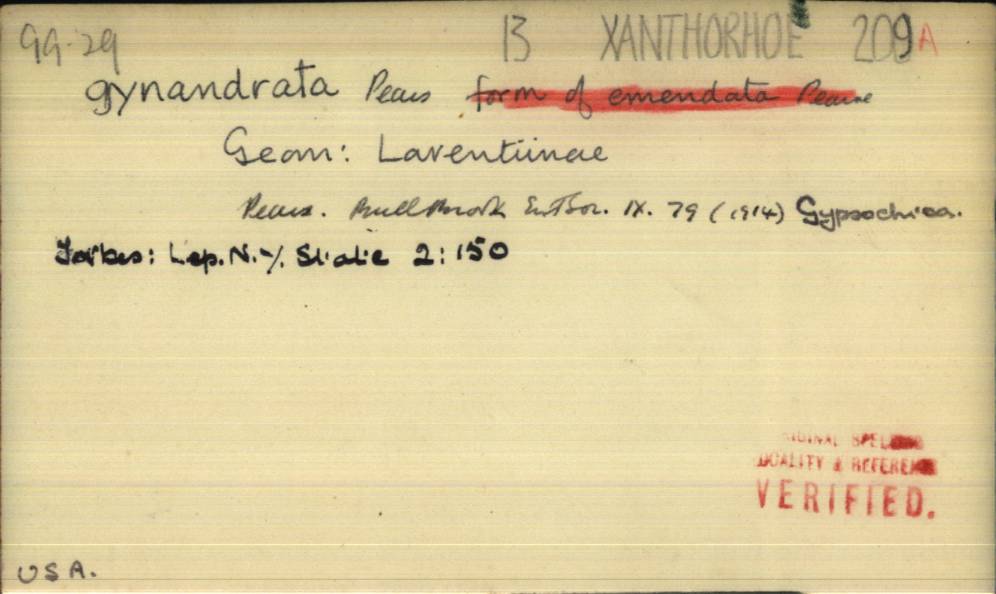 99-29 13 XANTHORHOE 209A
gynandrata Pears form of emendata Pearse
Geom: Larentiinae
Pears. Bull Brook Ent Soc. IX. 79 (1914) Gypsochroa.
Forbes: Lep. N.Y. State 2:150
ORIGINAL SPELLING
LOCALITY & REFERENCE
VERIFIED.
USA.